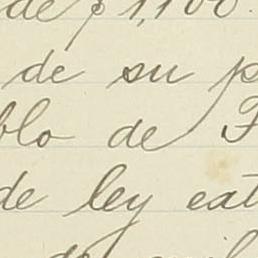 de $1,100.
de su p
blo de F
de ley ext
de